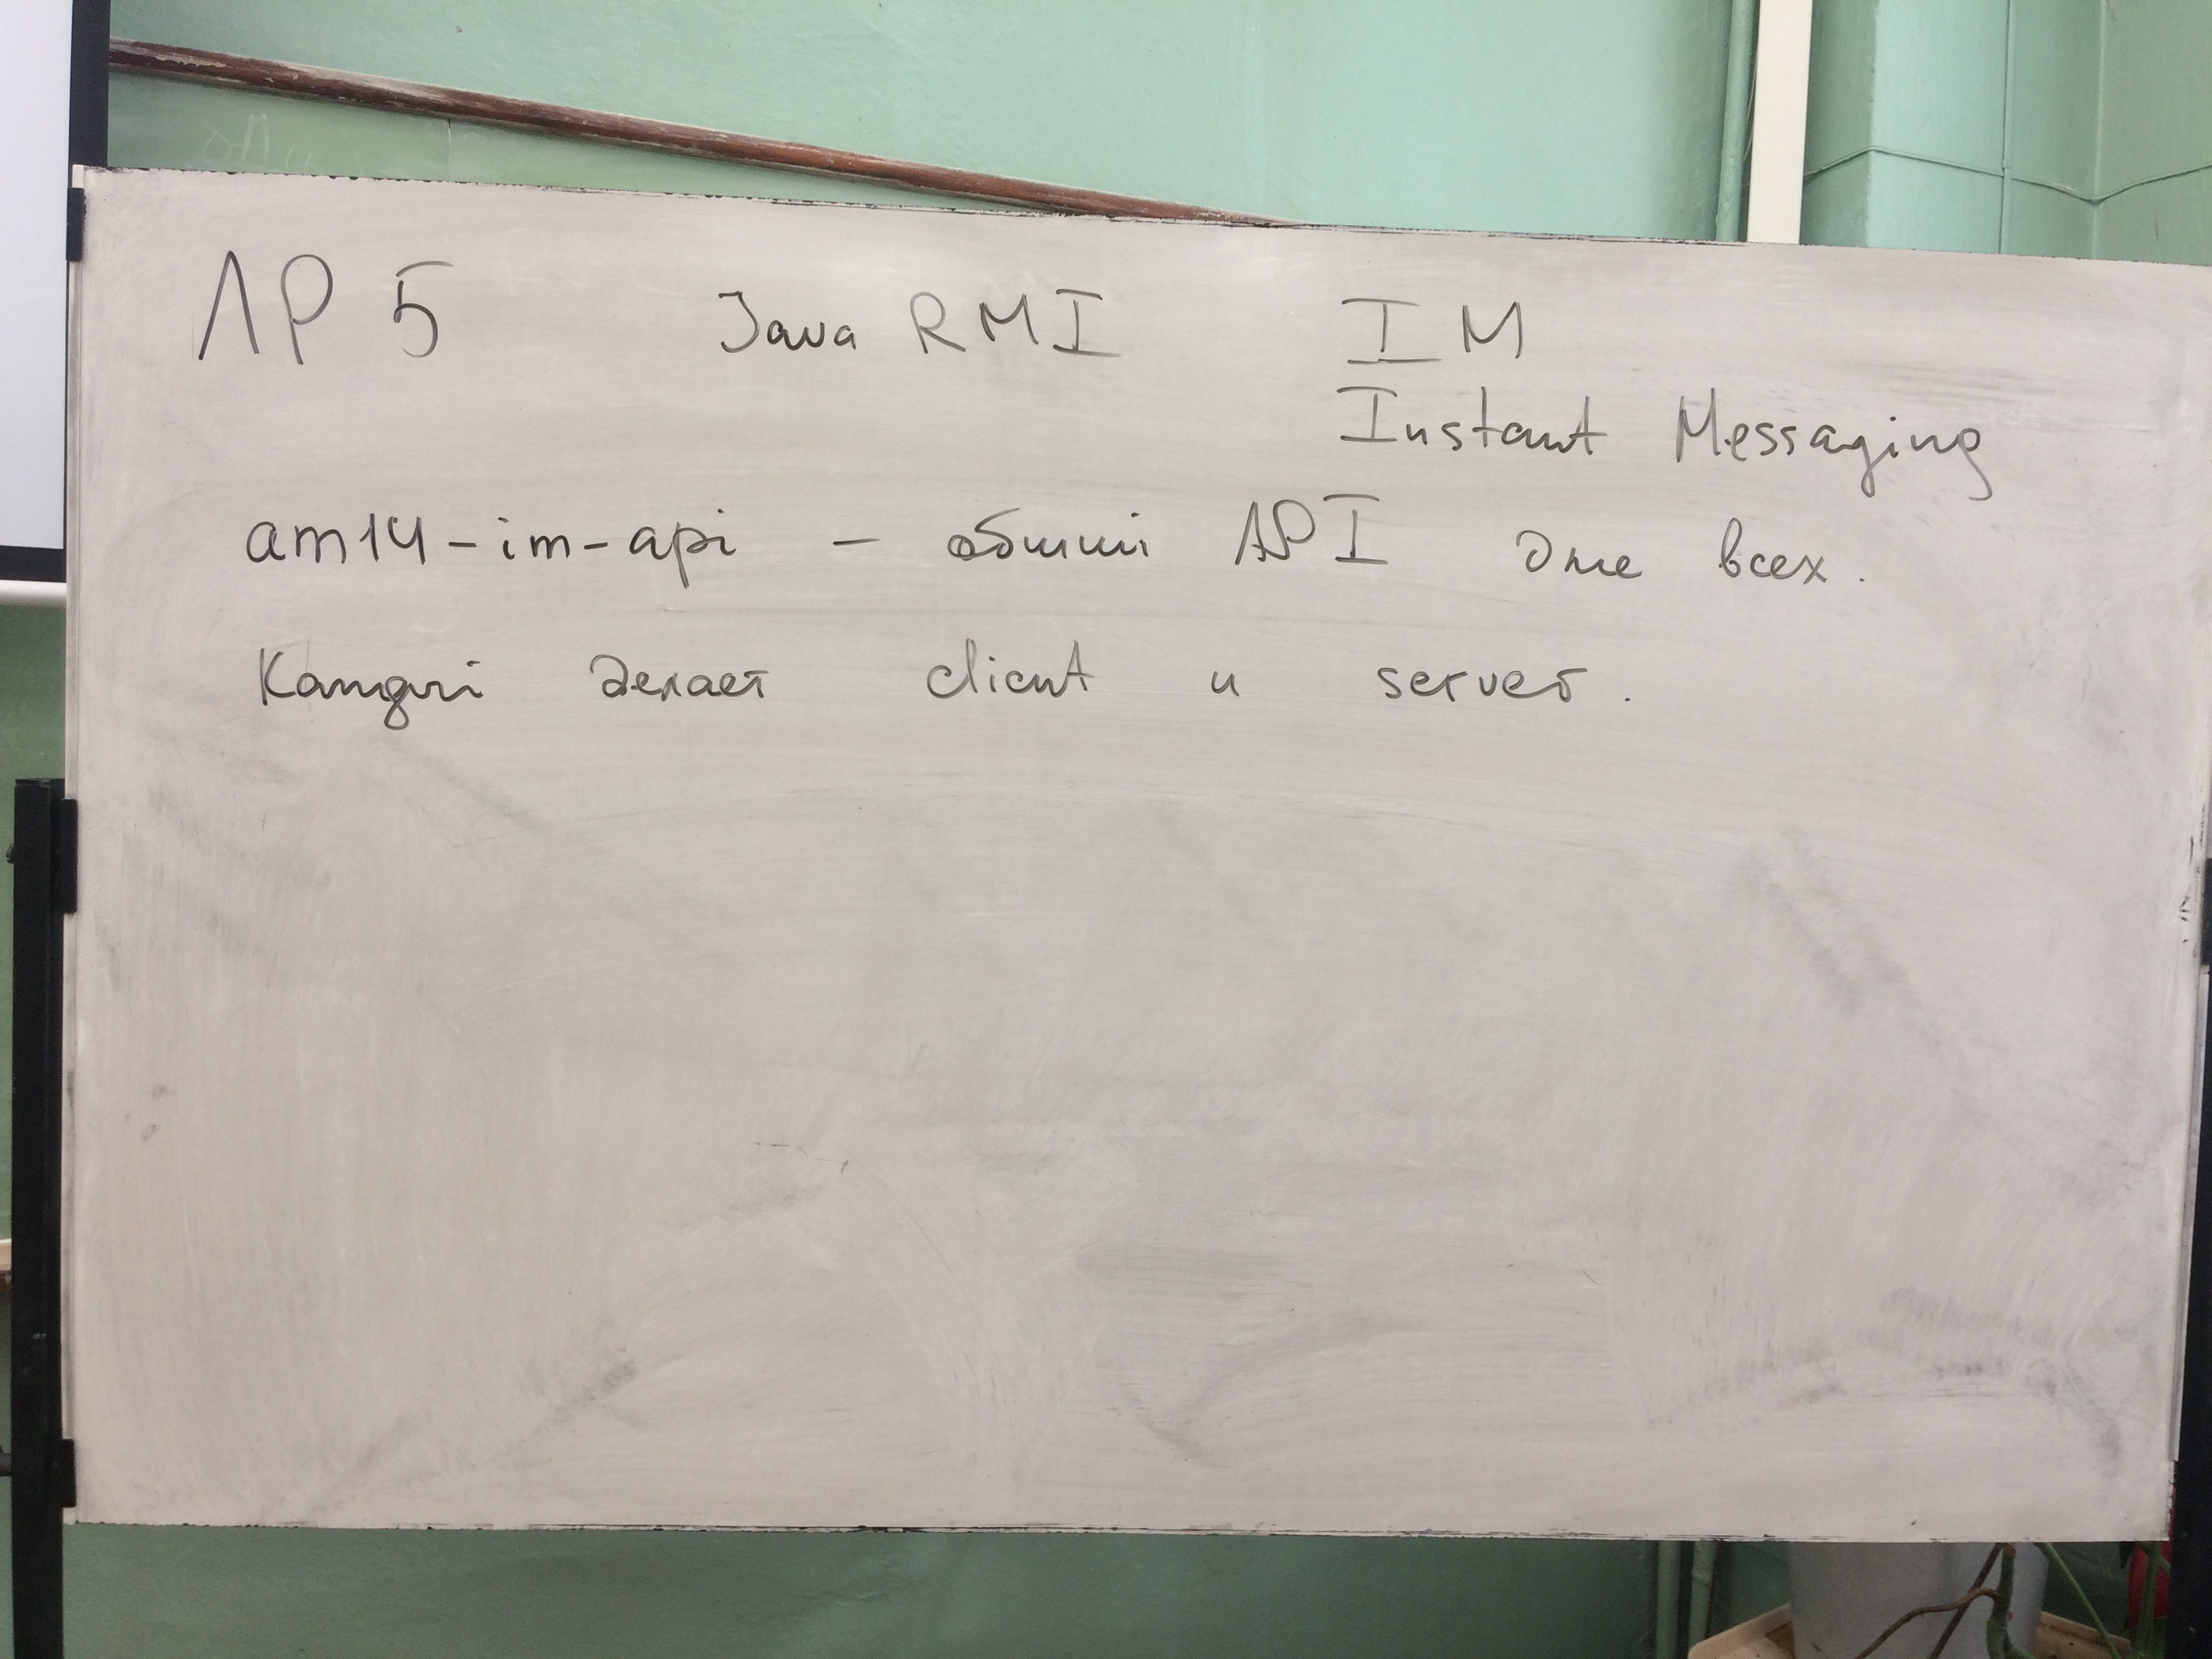 ЛР 5 Java RMI IM
Instant Messaging
am14-im-api - общий API для всех.
Каждый делает client и server.